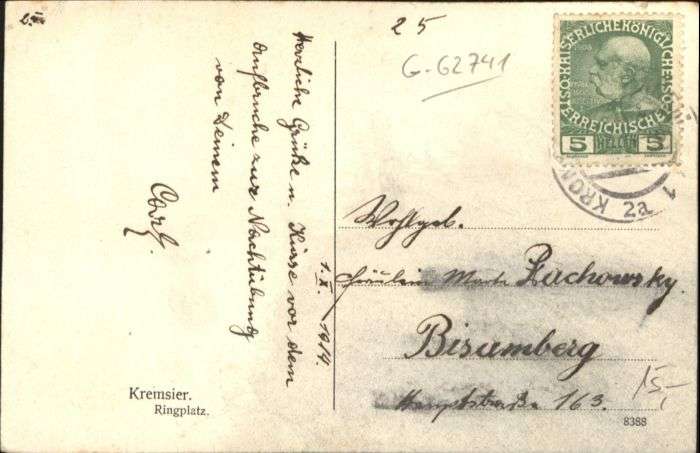 25
25
G-62741
KAISERLICHE KÖNIGLICHE ÖSTERREICHISCHE POST
5 HELLER 5
KRO
2a
1
1. X. 1914.
Herzliche Grüße u. Küsse vor dem
Aufbruche zur Nachtübung
von Deinem
Carl.
Wohlgeb.
Fräulein Rachowsky.
Bisamberg
Hauptstraße 163.
15,-
Kremsier.
Ringplatz.
8388